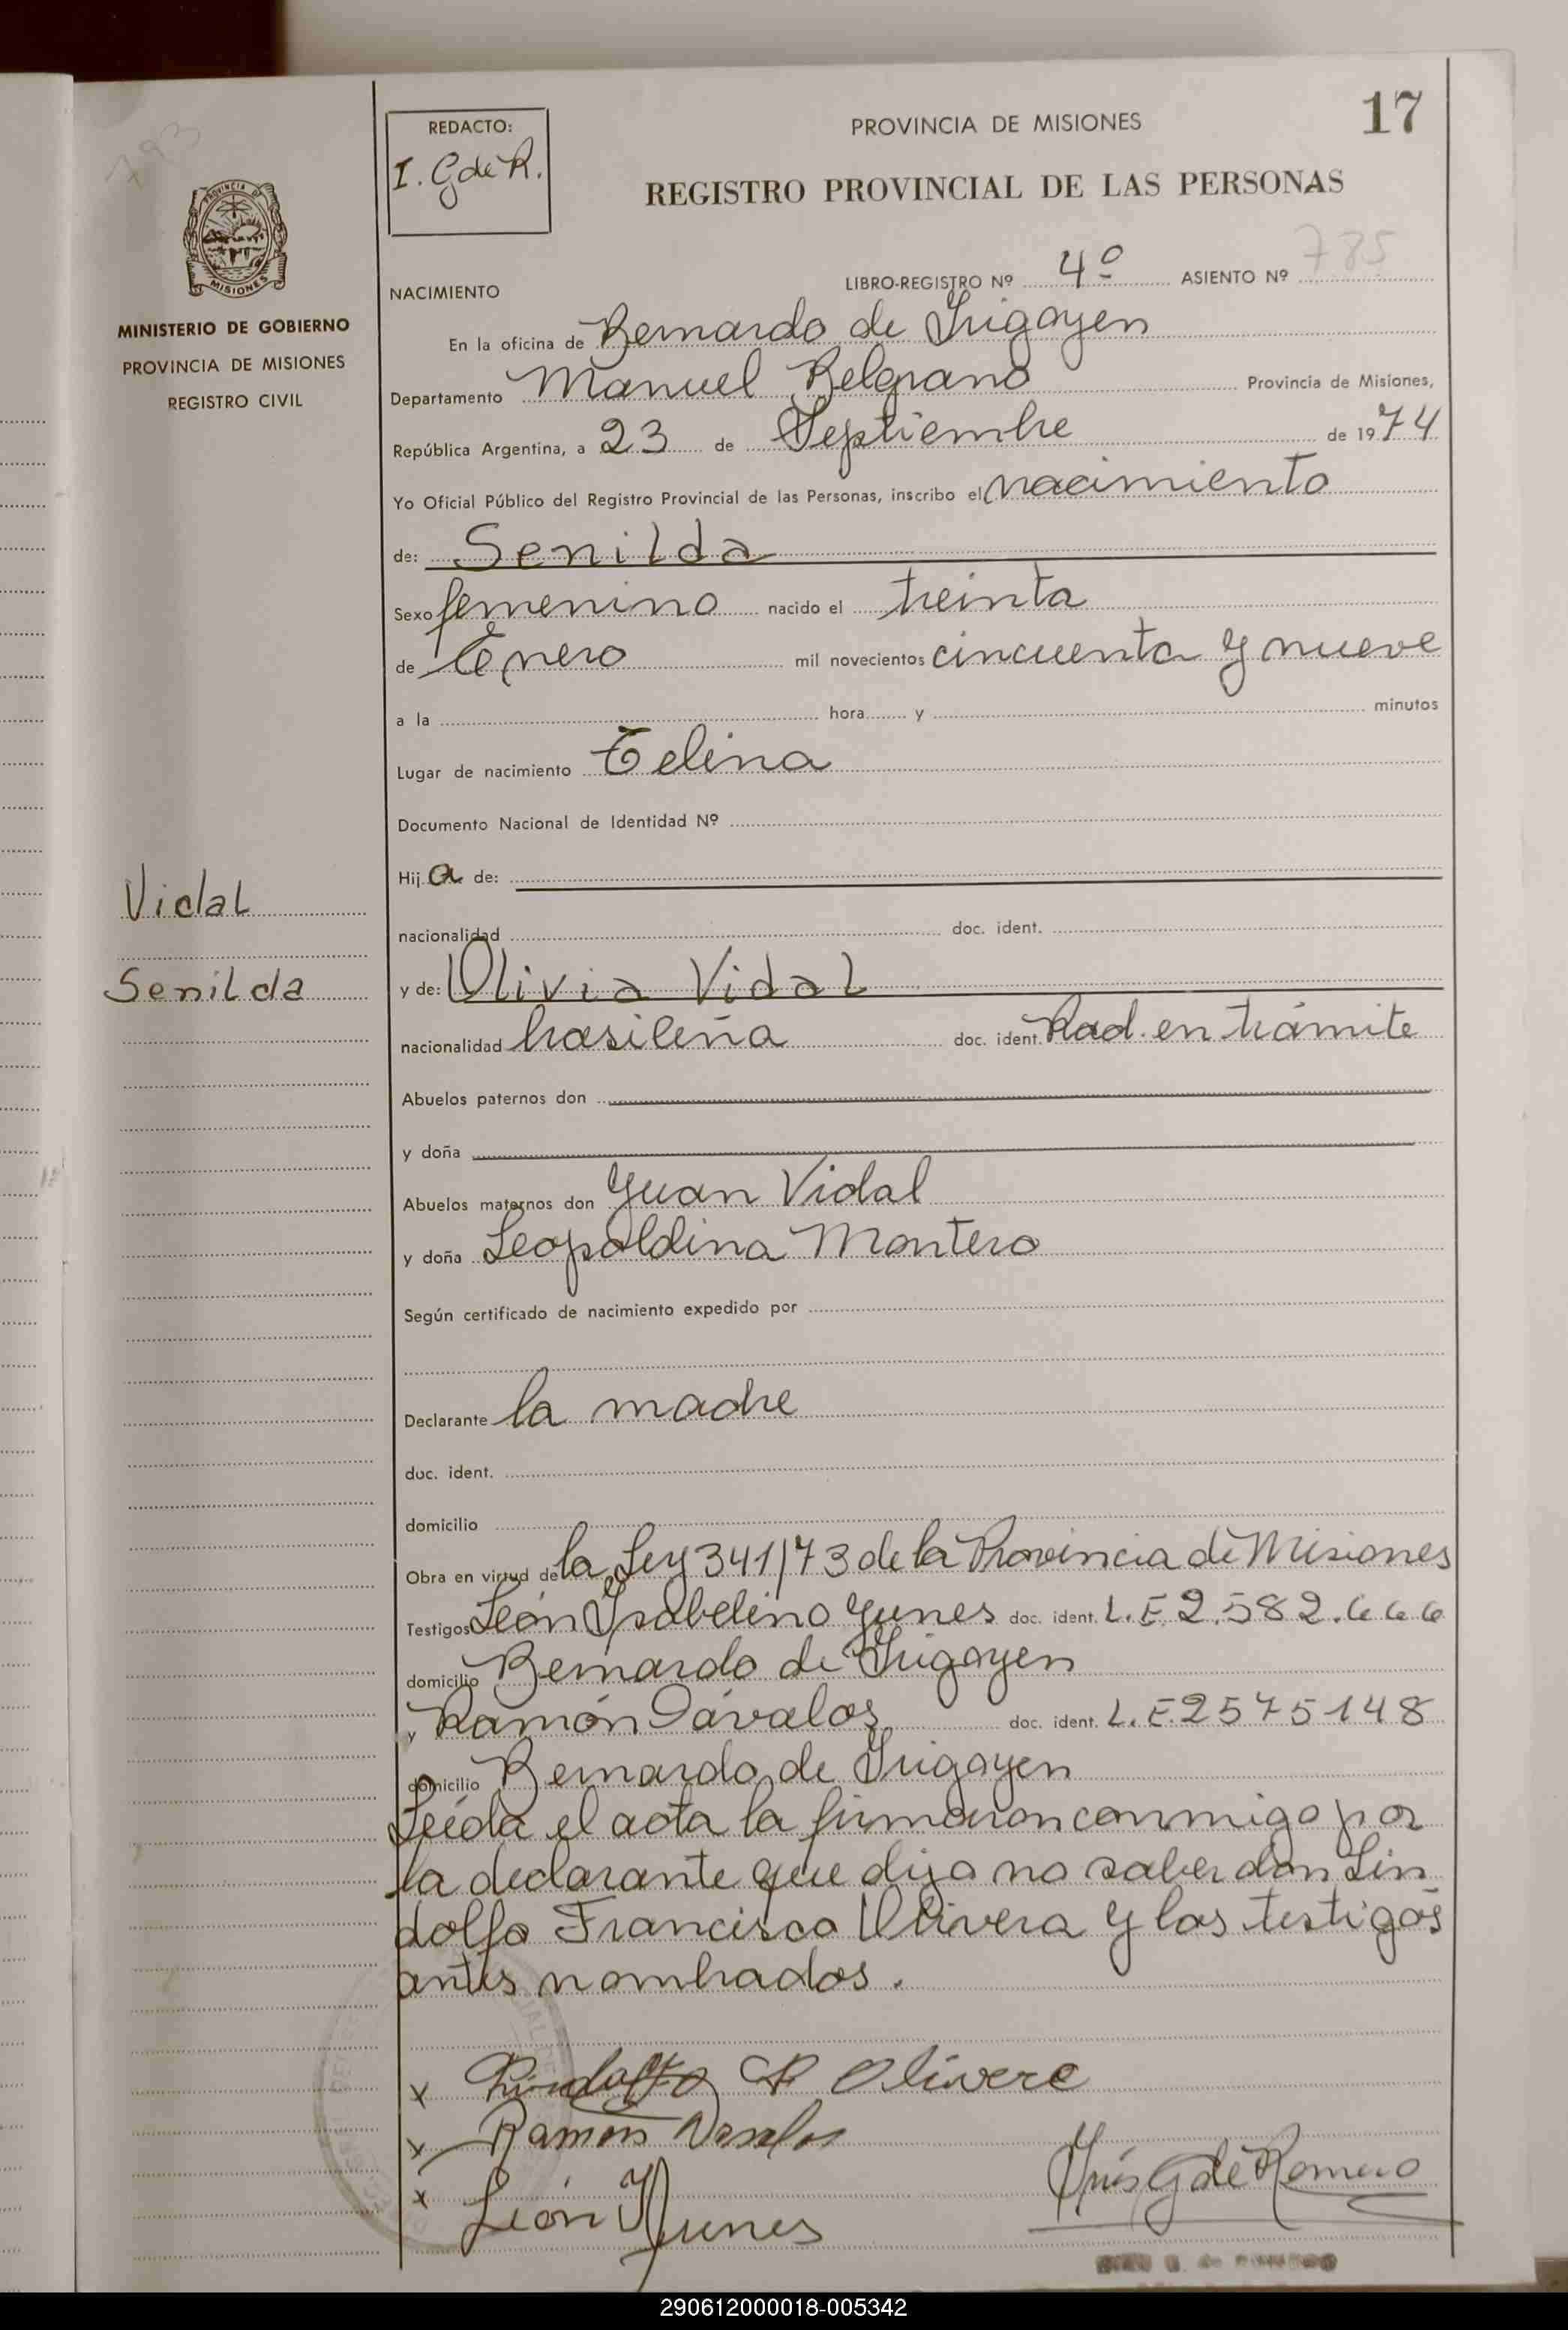 17
793
REDACTO:
I. G de R.
PROVINCIA DE MISIONES
REGISTRO PROVINCIAL DE LAS PERSONAS
PROVINCIA DE
MISIONES
MINISTERIO DE GOBIERNO
PROVINCIA DE MISIONES
REGISTRO CIVIL
LIBRO-REGISTRO Nº 4º ASIENTO Nº 785
NACIMIENTO
En la oficina de Bernardo de Irigoyen
Departamento Manuel Belgrano Provincia de Misiones,
República Argentina, a 23 de Septiembre de 1974
Yo Oficial Público del Registro Provincial de las Personas, inscribo el nacimiento
de: Senilda
Sexo femenino nacido el treinta
de Enero mil novecientos cincuenta y nueve
a la hora y minutos
Lugar de nacimiento Celina
Documento Nacional de Identidad Nº
Hija de:
Vidal
Senilda
nacionalidad doc. ident.
y de: Olivia Vidal
nacionalidad brasileña doc. ident. Rad. en trámite
Abuelos paternos don
y doña
Abuelos maternos don Juan Vidal
y doña Leopoldina Montero
Según certificado de nacimiento expedido por
Declarante la madre
doc. ident.
domicilio
Obra en virtud de la Ley 341/73 de la Provincia de Misiones
Testigos León Ysabelino Yunes doc. ident. L.E 2.582.666
domicilio Bernardo de Irigoyen
y Ramón Dávalos doc. ident. L.E. 2575148
domicilio Bernardo de Irigoyen
Leída el acta la firmaron conmigo por
la declarante que dijo no saber don Lin
dolfo Francisco Olivera y los testigos
antes nombrados.
x Lindolfo F Olivera
x Ramon Davalos
x León Y Yunes
Inés G de Romero
290612000018-005342